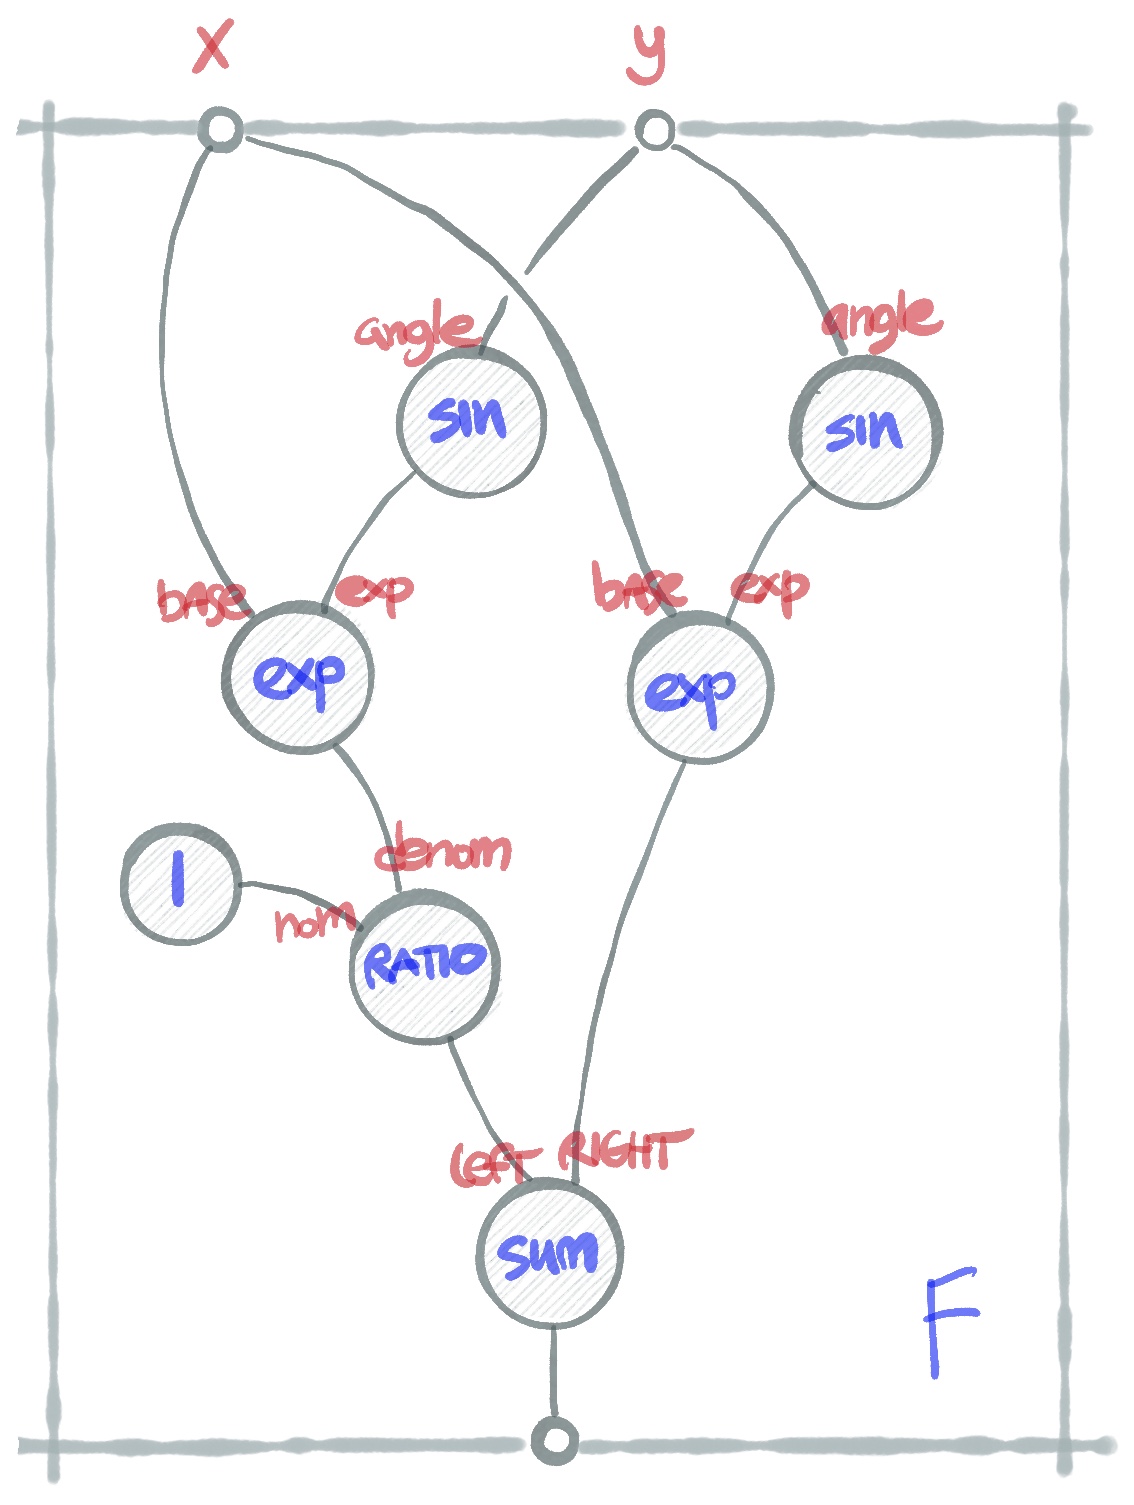 x
y
angle
angle
sin
sin
base exp
base exp
exp
exp
denom
1
nom
RATIO
left RIGHT
sum
F